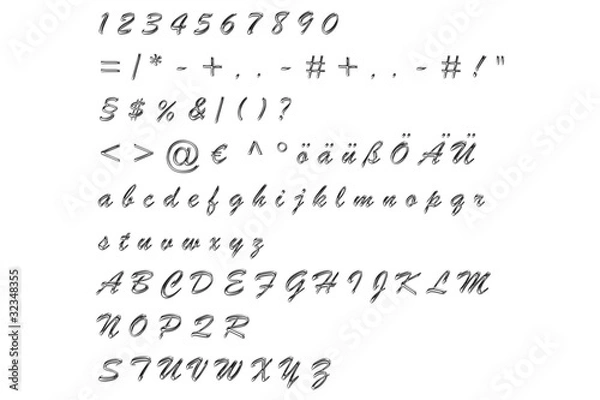 1 2 3 4 5 6 7 8 9 0
= / * - + . . - # + . . - # ! "
§ $ % & / ( ) ?
< > @ € ^ ° ö ä ü ß Ö Ä Ü
a b c d e f g h i j k l m n o p q r
s t u v w x y z
A B C D E F G H I J K L M
N O P Q R
S T U V W X Y Z
Adobe Stock | #32348355